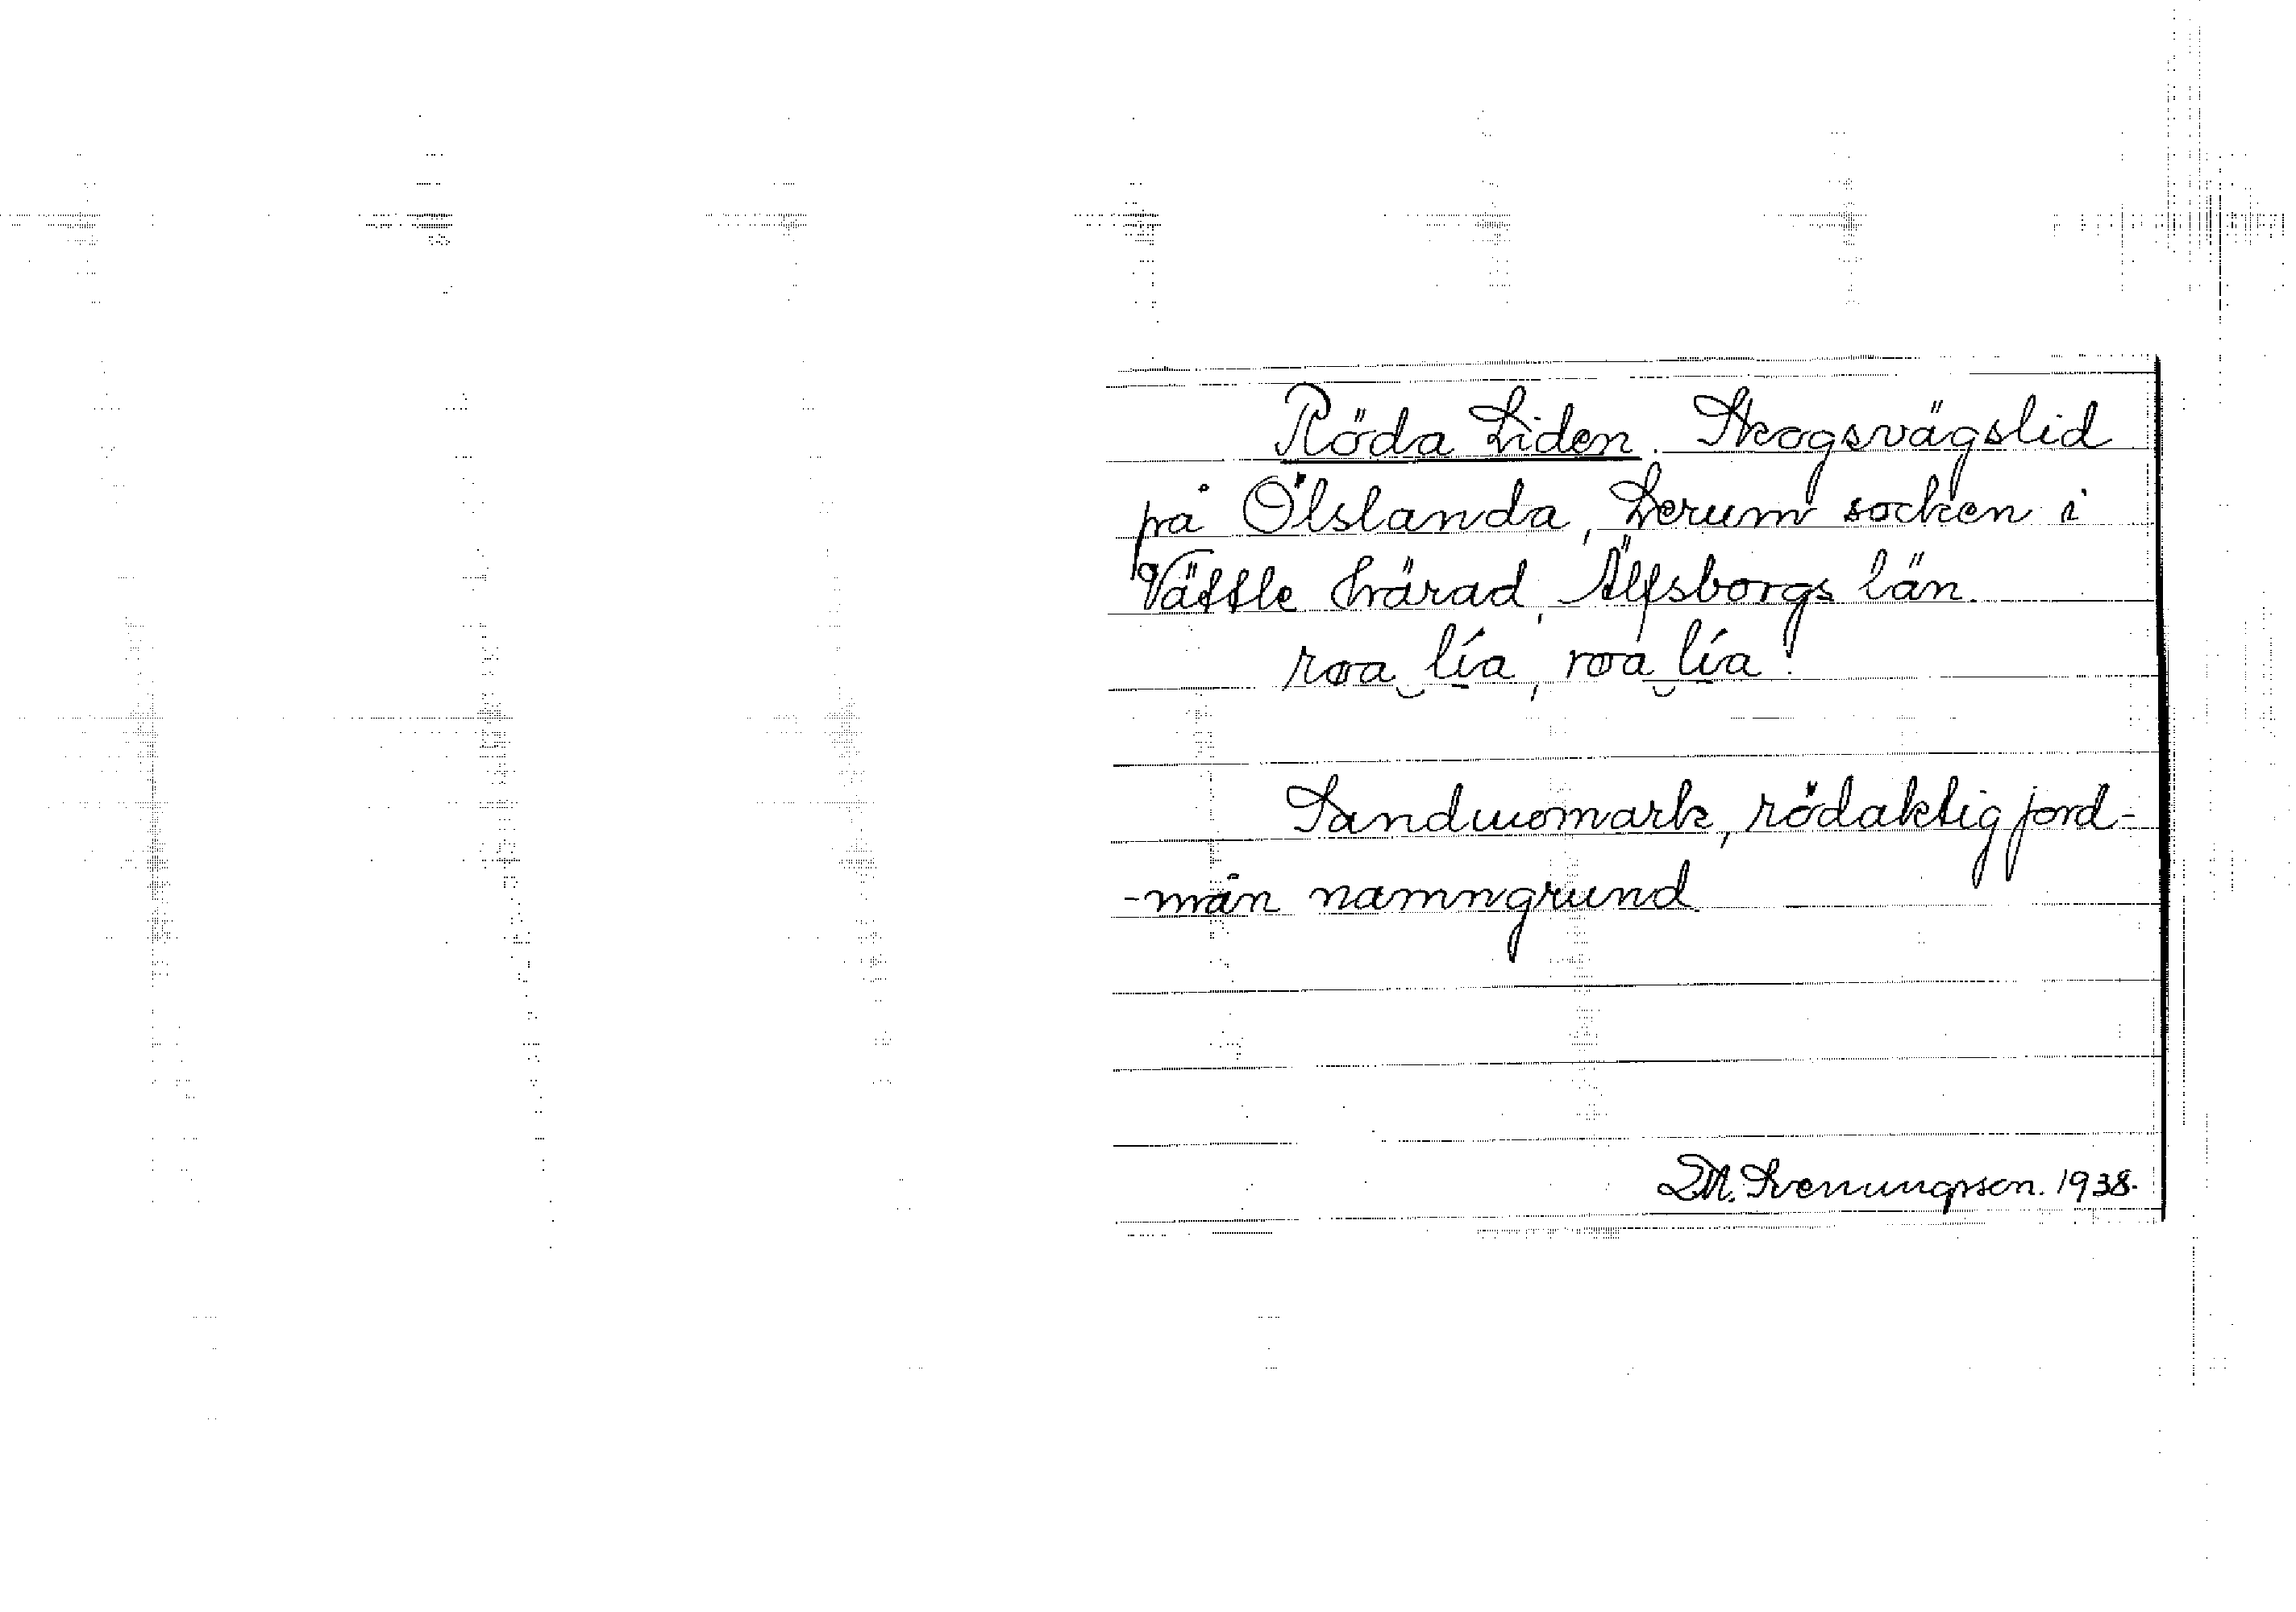 Röda Liden. Skogsvägslid
på Ölslanda, Lerum socken i
Vättle härad, Älfsborgs län.
röa lía, röa lía.
Sandmomark, rödaktig jord-
-mån namngrund.
D.M. Svenungsson. 1938.